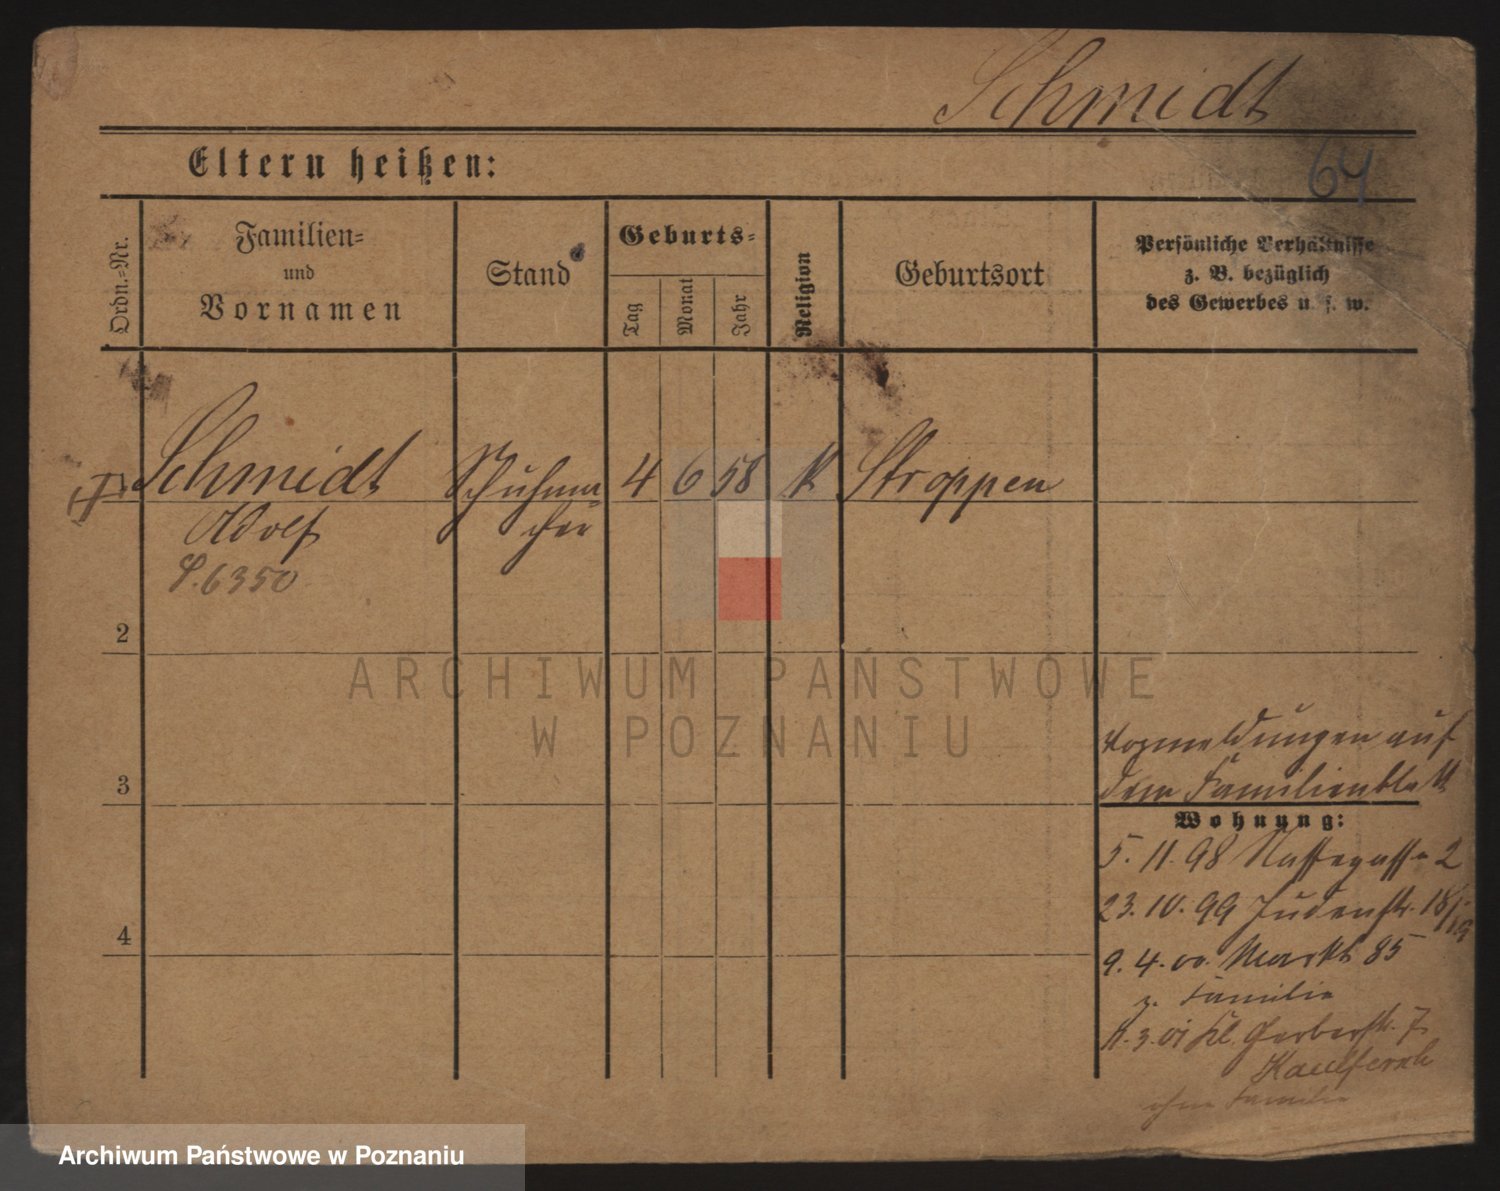 Schmidt
64
Eltern heißen:
Ordn.-Nr.
Familien-
und
Vornamen
Stand
Geburts-
Tag
Monat
Jahr
Religion
Geburtsort
Persönliche Verhältnisse
z. B. bezüglich
des Gewerbes u. s. w.
Schmidt Schuhma 4 6 58 k Stroppen
Adolf cher
S. 6350
2
3
4
Vormeldungen auf
dem Familienblatt
Wohnung:
5. 11. 98 Nassegasse 2
23. 10. 99 Judenstr. 18/19
9. 4. 00. Markt 85
z. Familie
3. 01 Kl. Gerberstr. 7
ohne Familie
ARCHIWUM PAŃSTWOWE
W POZNANIU
Archiwum Państwowe w Poznaniu